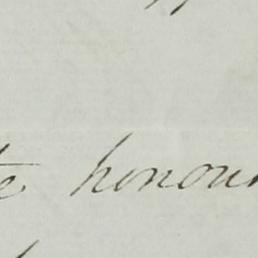 te honour